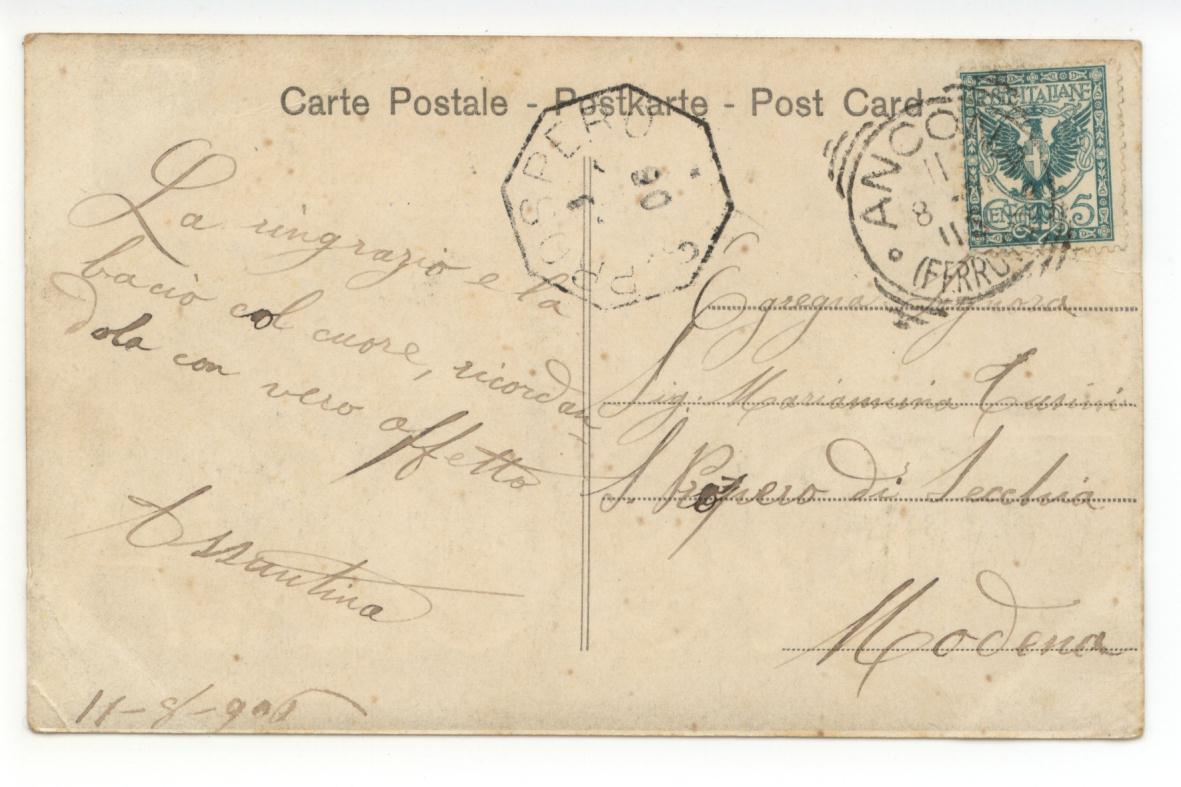 Carte Postale - Postkarte - Post Card
PROSPERO
06
ANCO
11
8
11
(FERRO
POSTE ITALIANE
CENT. 5
La ringrazio e la
bacio col cuore, ricordan
dola con vero affetto
11-8-906
Egregia Signora
Sig. Mariannina
S. Prospero di Secchia
Modena